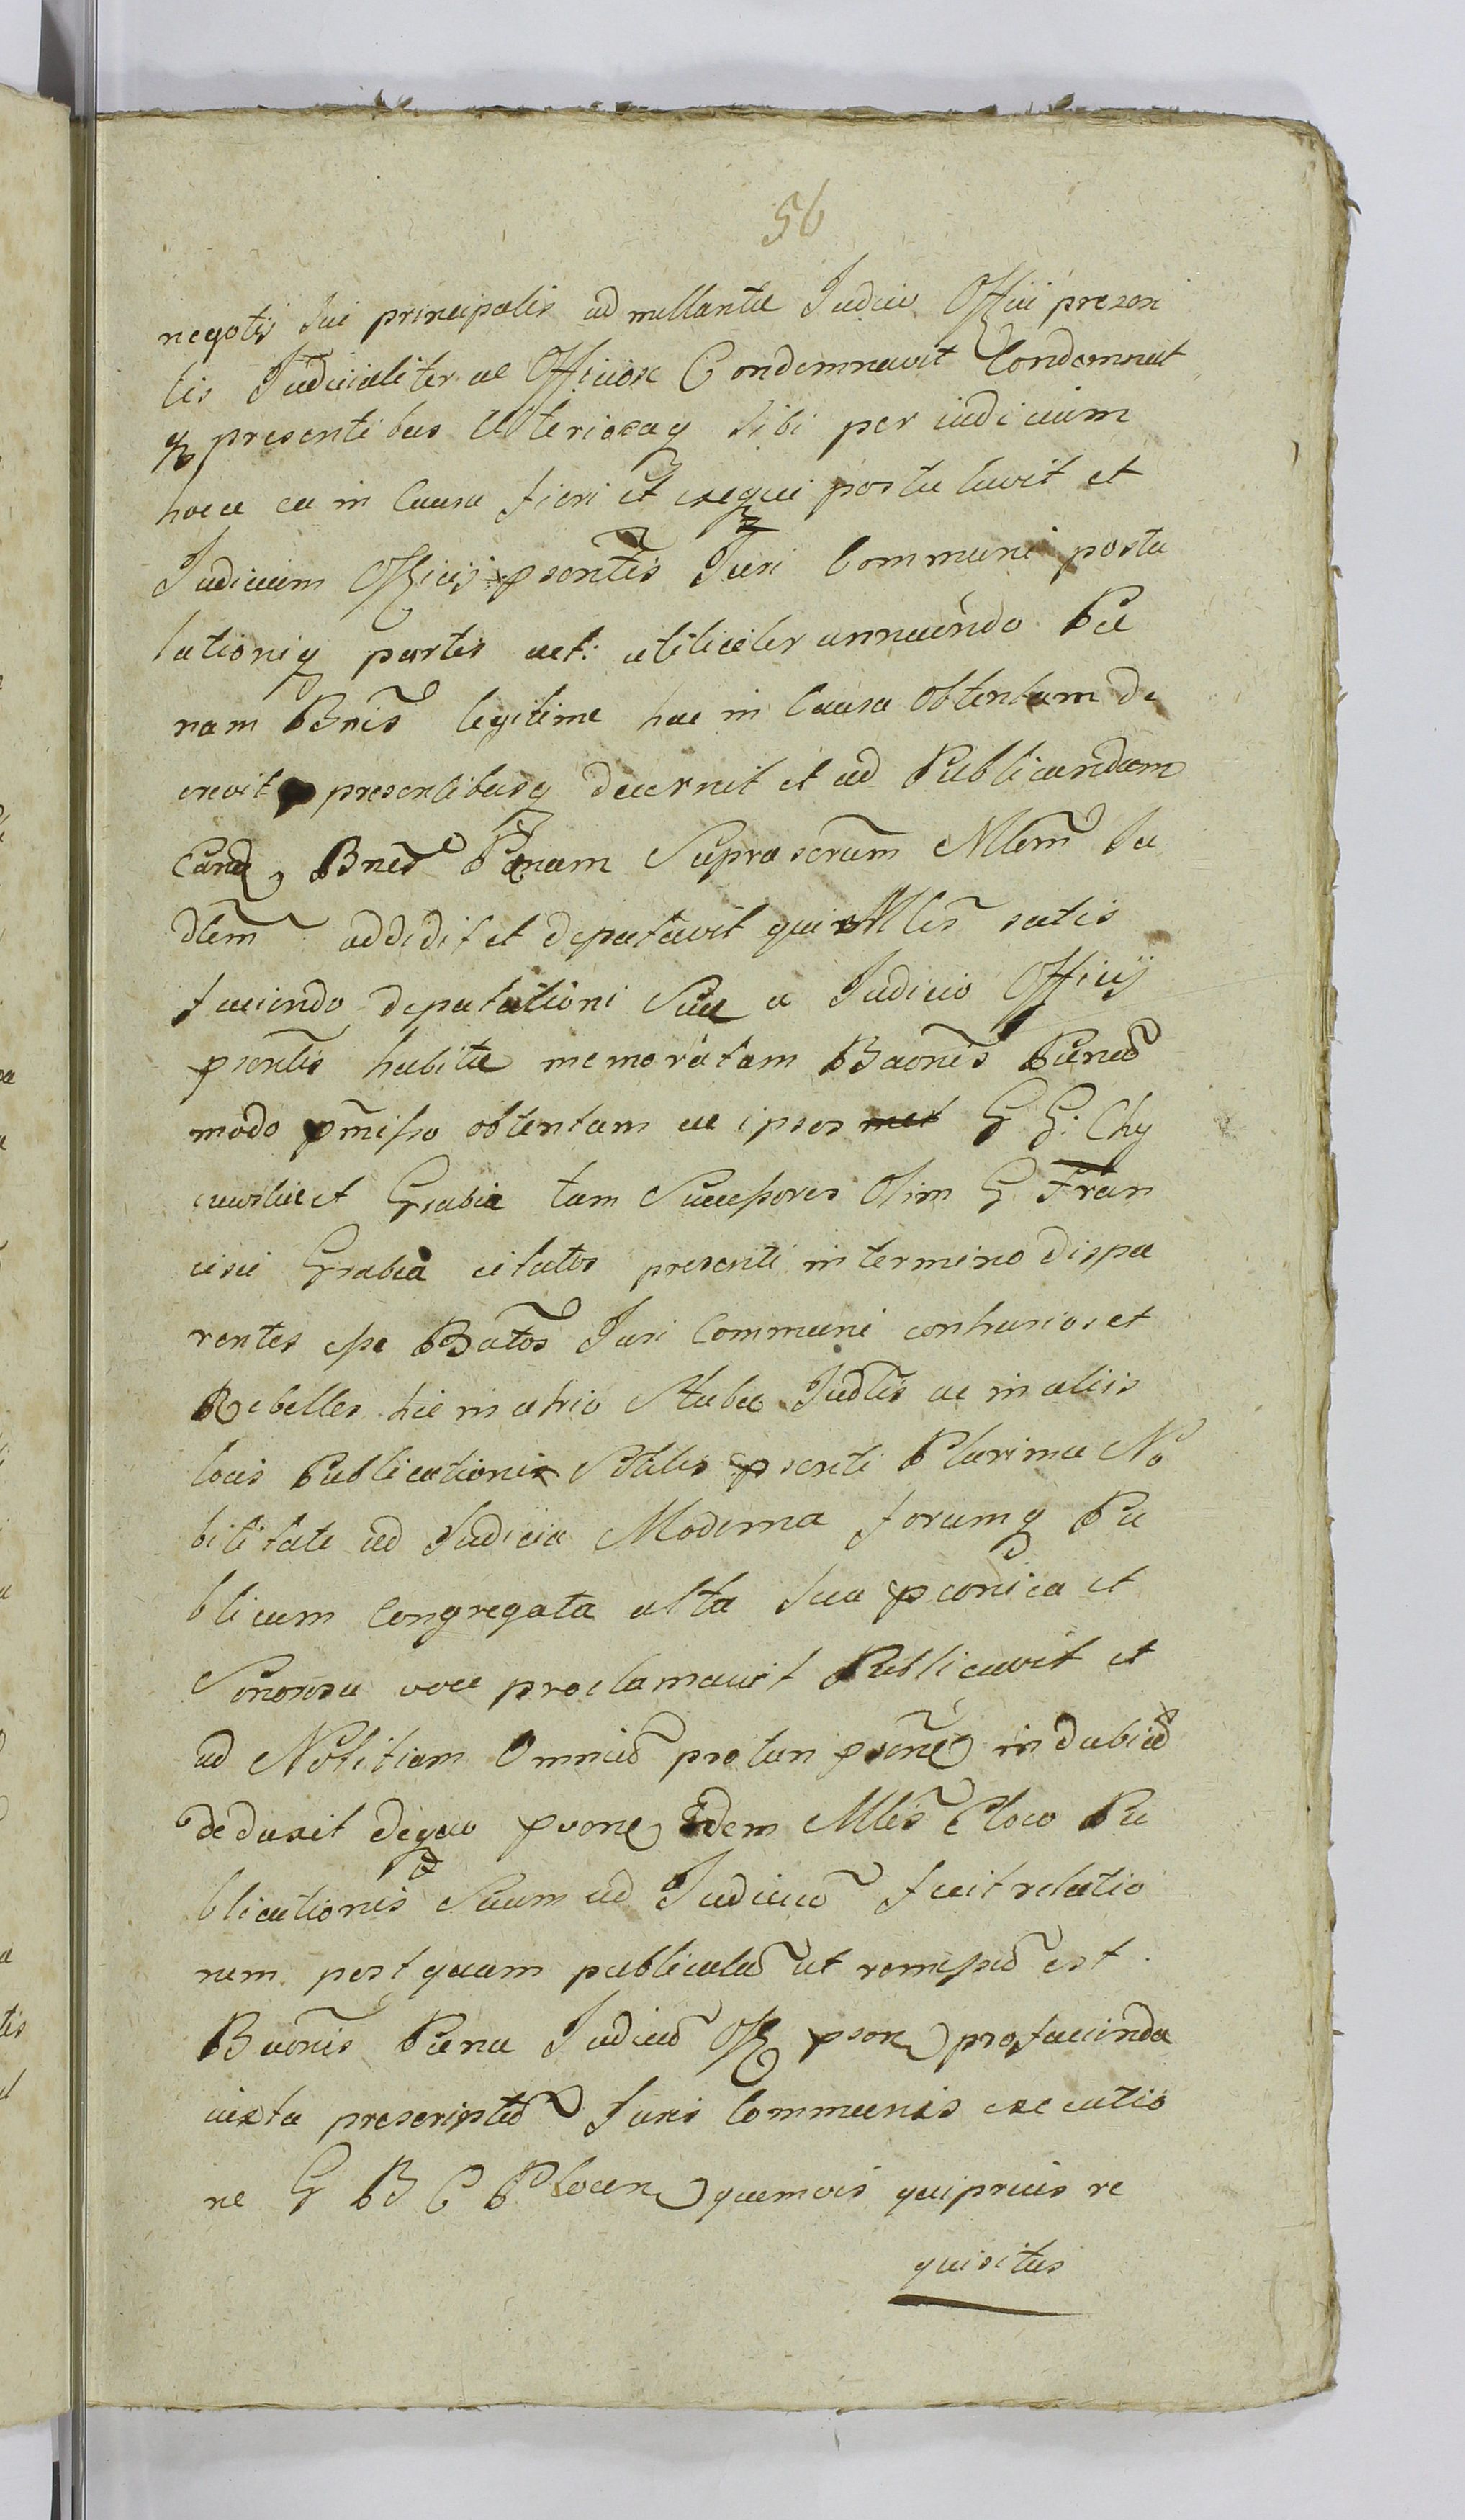 56
negotij sui principalis ad mellantæ Iudicio Officii presen
tis Iudicialiter ac Officiose Condemnavit Condemnat
q presentibus Ulterioraq sibi per iudicium
hocce ea in Causa fieri et exequi postulavit et
Iudicium Officij psentis Iuri Communi postu
lationiq partis act: utiliciter annuendo Pæ
nam Bnis legitime hac in Causa Obtentam de
crevit presentibusq decernit et ad Publicandam
Eand, Bnis Pænam Suprascrum Mlem Iu
dlem addidit et deputavit qui Mles satis
faciendo deputationi Suæ a Iudicio Officij
psentis habitæ memoratam Baonis Pænam
modo pmisso obtentam ac ipsos met G G: Chy
czewskie et Grabia tam Successores Olim G Fran
cisci Grabia citatos presenti in termino dispa
rentes esse Batos Iuri Communi contrarios et
Rebelles hic in atrio Stubæ Iudlis ac in aliis
locis Publicationis Solitis psenti Plurima No
bilitate ad Iudicia Moderna forumq Pu
blicum Congregata alta sua pconica et
Sonorosa voce proclamavit Publicavit et
ad Notitiam Omnium protun psone indubiam
deduxit deqeo pvone Idem Mles E loco Pu
blicationis Suam ad Iudicium fecit relatio
nem postquam publicata ut remissum est
Baonis Pæna Iudicium Off pson pro facienda
iuxta prescriptum Iuris Communis executio
ne G B C Plocen quemvis qui prius re
quisitus